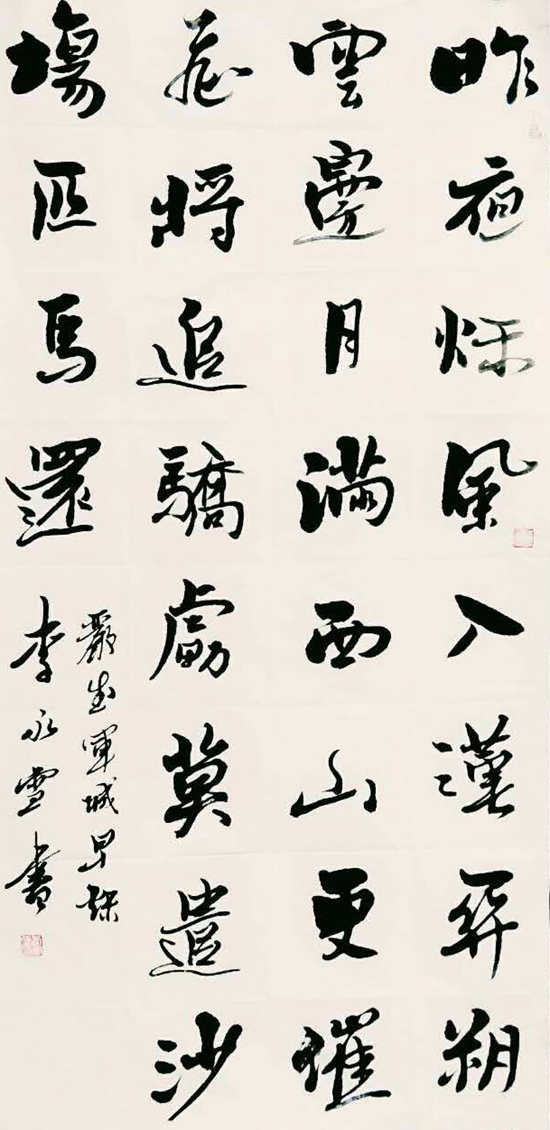 昨夜秋風入漢關朔
雲邊月滿西山更催
飛將追驕虜莫遣沙
場匹馬還
嚴武軍城早秋
李永雪書